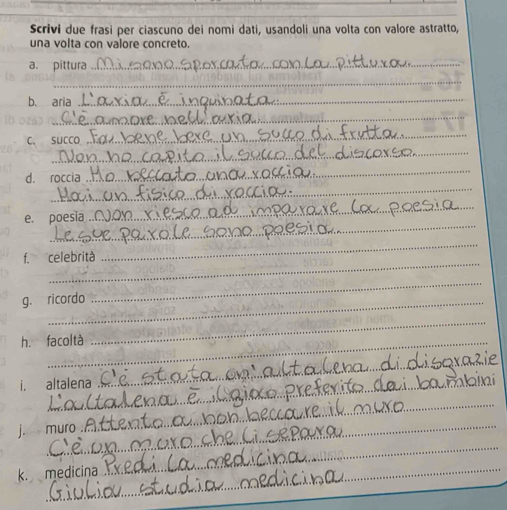 Scrivi due frasi per ciascuno dei nomi dati, usandoli una volta con valore astratto,
una volta con valore concreto.
a. pittura Mi sono sporcata con la pittura.
b. aria L'aria è inquinata
C'è amore nell'aria.
c. succo Fa bene bere un succo di frutta.
Non ho capito il succo del discorso.
d. roccia Ho beccato una roccia.
Hai un fisico di roccia.
e. poesia Non riesco ad imparare la poesia
Le sue parole sono poesia.
f. celebrità
g. ricordo
h. facoltà
C'è stata un'altalena di disgrazie
i. altalena
L'altalena è il gioco preferito dai bambini
j. muro Attento a non beccare il muro
C'è un muro che li separa
k. medicina Predi la medicina
Giulia studia medicina